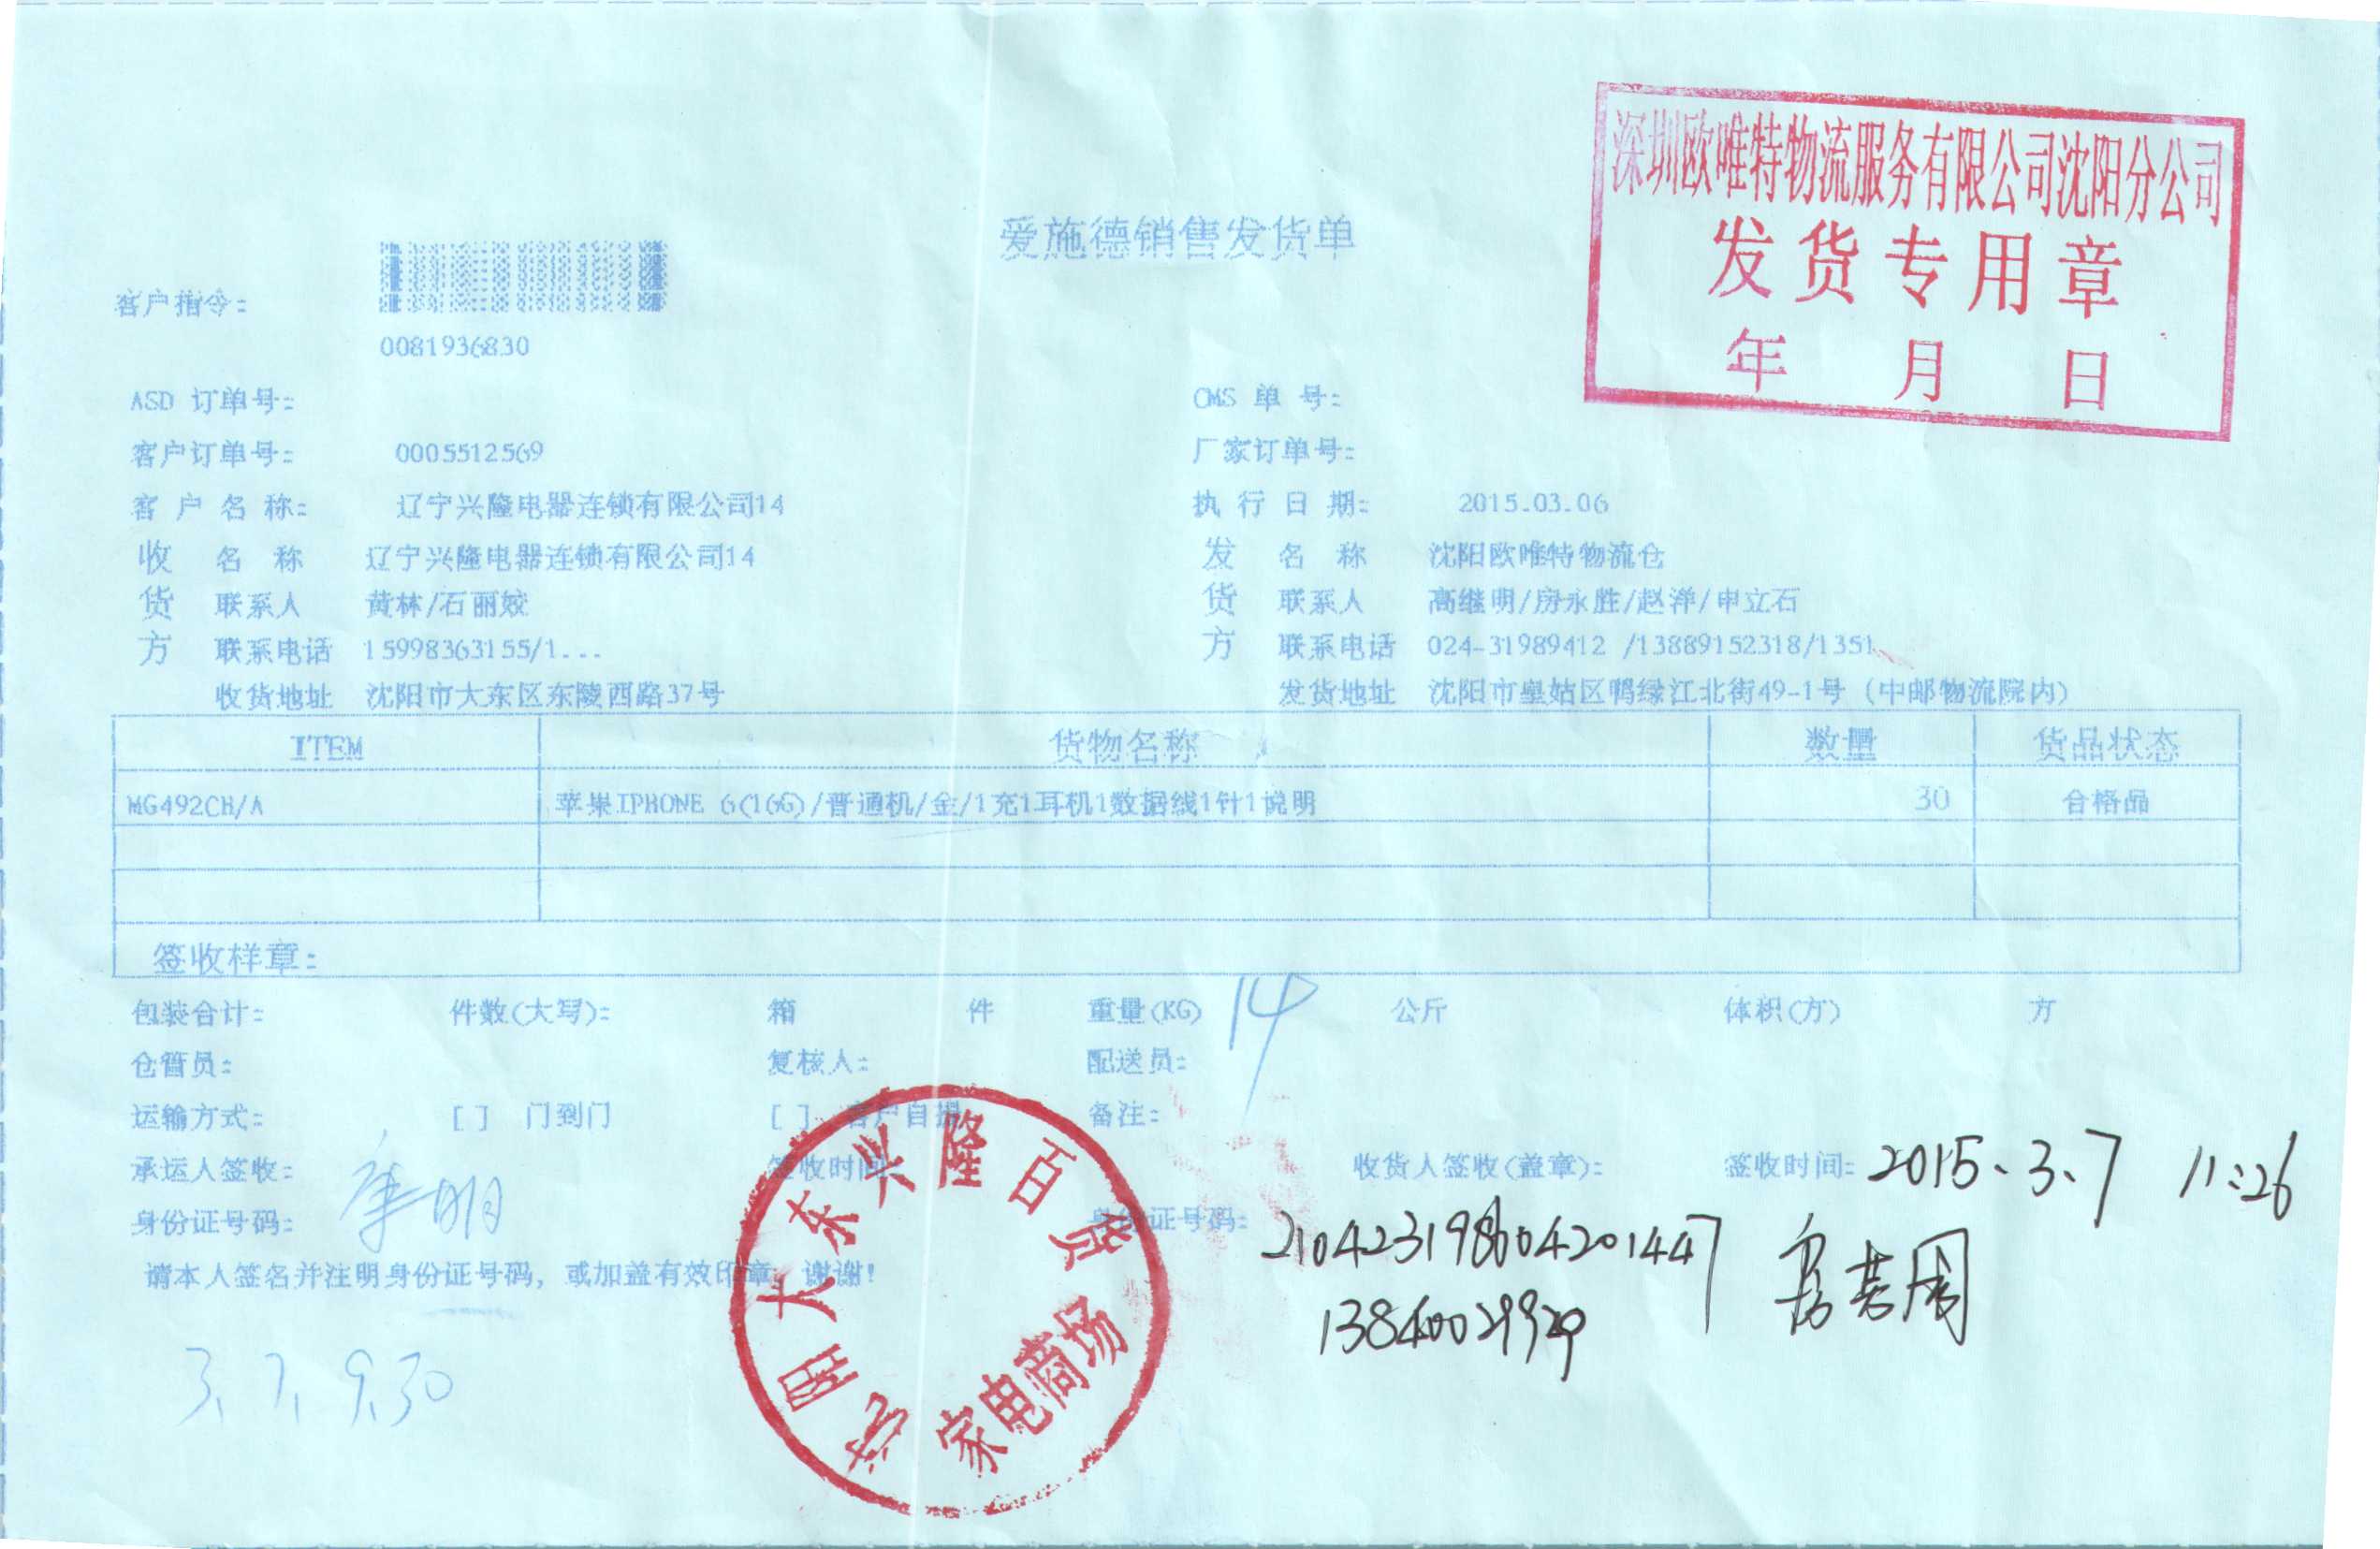 深圳欧唯特物流服务有限公司沈阳分公司
发货专用章
年 月 日
爱施德销售发货单
客户指令:
0081936830
ASD 订单号: CMS 单 号:
客户订单号: 0005512569 厂家订单号:
客 户 名 称: 辽宁兴隆电器连锁有限公司14 执 行 日 期: 2015.03.06
收 名 称 辽宁兴隆电器连锁有限公司14 发 名 称 沈阳欧唯特物流仓
货 联系人 黄林/石丽姣 货 联系人 高继明/房永胜/赵洋/申立石
方 联系电话 15998363155/1... 方 联系电话 024-31989412 /13889152318/1351
收货地址 沈阳市大东区东陵西路37号 发货地址 沈阳市皇姑区鸭绿江北街49-1号 (中邮物流院内)
ITEM 货物名称 数量 货品状态
MG492CH/A 苹果IPHONE 6(16G)/普通机/金/1充1耳机1数据线1针1说明 30 合格品
签收样章:
包装合计: 件数(大写): 箱 件 重量(KG) 14 公斤 体积(方) 方
仓管员: 复核人: 配送员:
运输方式: [ ] 门到门 [ ] 客户自提 备注:
承运人签收: 签收时间 收货人签收(盖章): 签收时间: 2015.3.7 11:26
身份证号码: 身份证号码: 210423198604201447
请本人签名并注明身份证号码, 或加盖有效印章, 谢谢!
13840029929
3.7.9.30
沈阳大东兴隆百货
家电商场